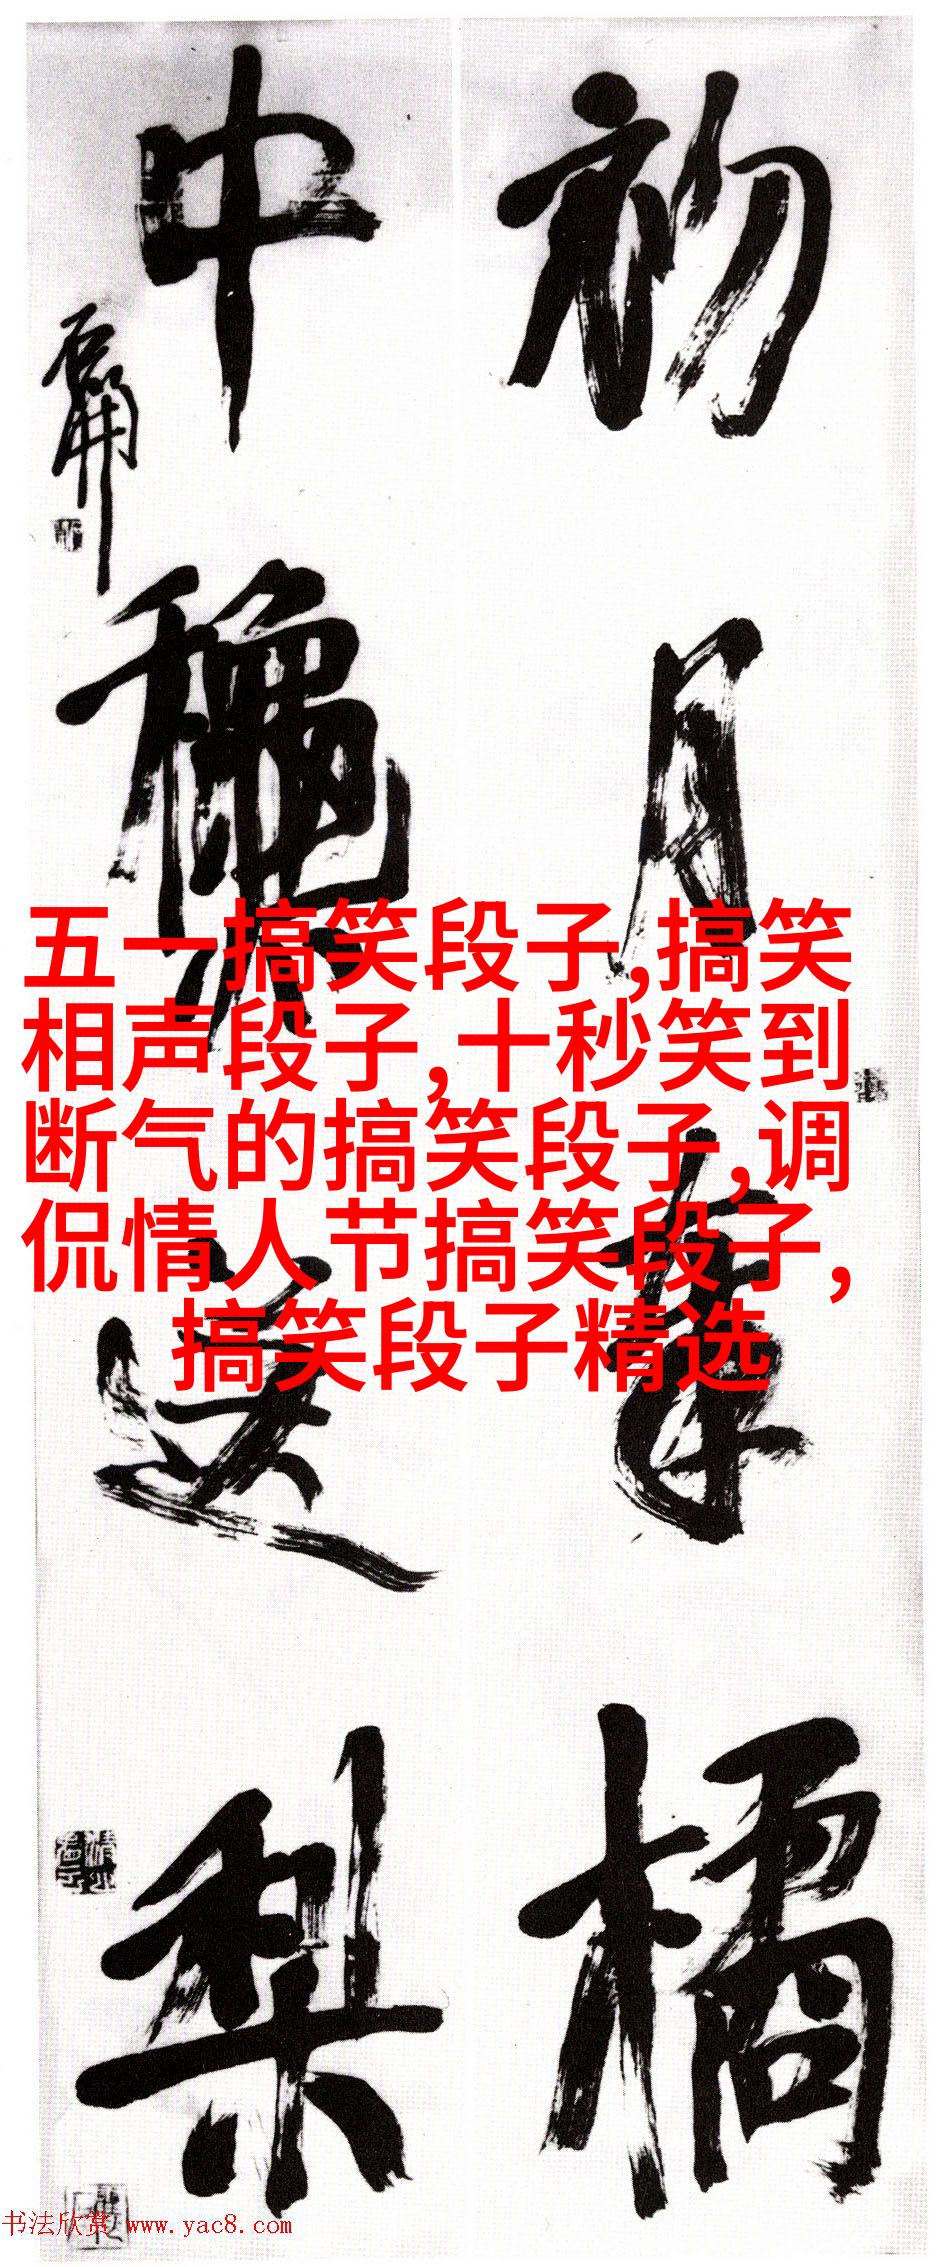 初月奉橘
中穐送梨
石開
五一搞笑段子,搞笑
相声段子,十秒笑到
断气的搞笑段子,调
侃情人节搞笑段子,
搞笑段子精选
书法欣赏 www.yac8.com